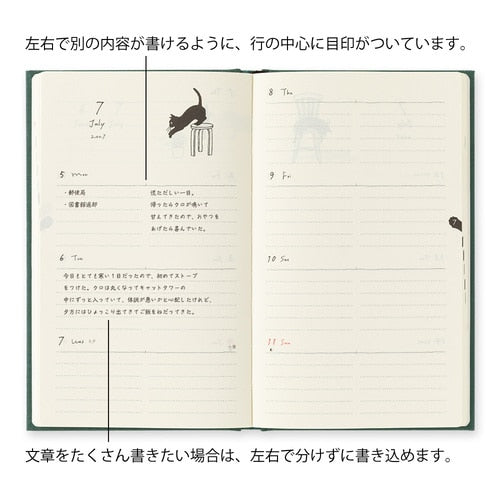 左右で別の内容が書けるように、行の中心に目印がついています。
7
July
5 Mon
・郵便局
・図書館返却
慌ただしい一日。
帰ったらクロが鳴いて
甘えてきたので、おやつを
あげたら喜んでいた。
6 Tue
今日もとても寒い1日だったので、初めてストーブ
をつけた。クロは丸くなってキャットタワーの
中にずっと入っていて、体調が悪いかと心配したけれど、
夕方にはひょっこり出てきてご飯をねだってきた。
7
8 Thu
9 Fri
10 Sat
11 Sun
7
文章をたくさん書きたい場合は、左右で分けずに書き込めます。